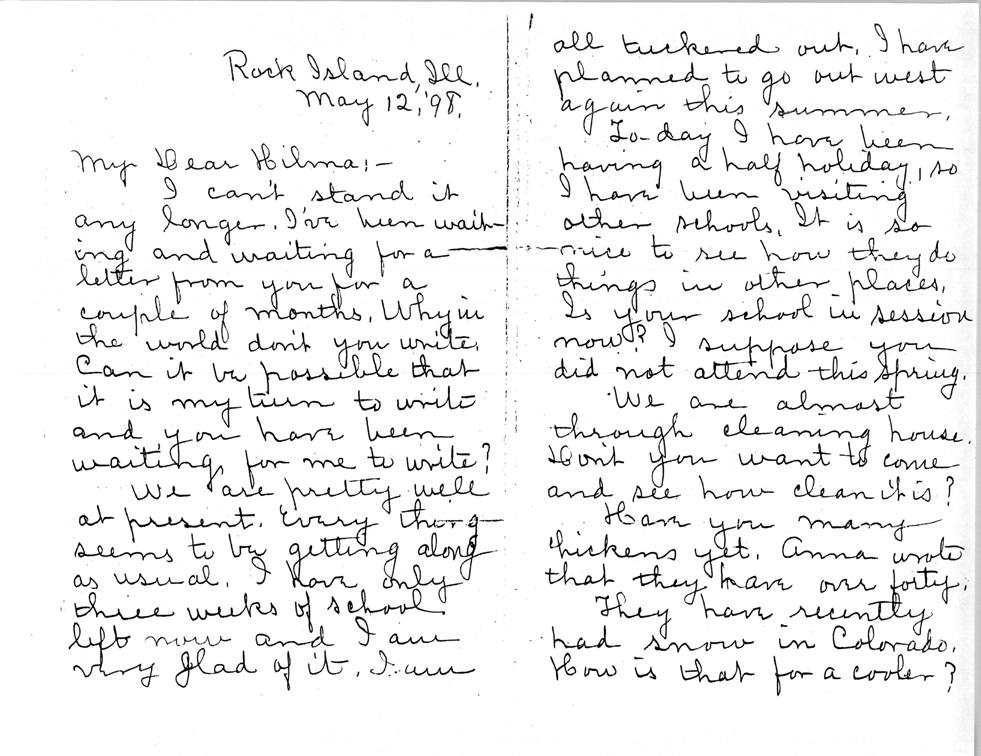 Rock Island, Ill.
May 12, '98.
My Dear Hilma:-
I can't stand it
any longer. I've been wait-
ing and waiting for a
letter from you for a
couple of months. Why in
the world don't you write.
Can it be possible that
it is my turn to write
and you have been
waiting for me to write?
We are pretty well
at present. Every thing
seems to be getting along
as usual. I have only
three weeks of school
left now and I am
very glad of it. I am
all tuckered out. I have
planned to go out west
again this summer.
To-day I have been
having a half holiday, so
I have been visiting
other schools. It is so
nice to see how they do
things in other places.
Is your school in session
now? I suppose you
did not attend this Spring.
We are almost
through cleaning house.
Don't you want to come
and see how clean it is?
Have you many
chickens yet. Anna wrote
that they have over forty.
They have recently
had snow in Colorado.
How is that for a cooler?